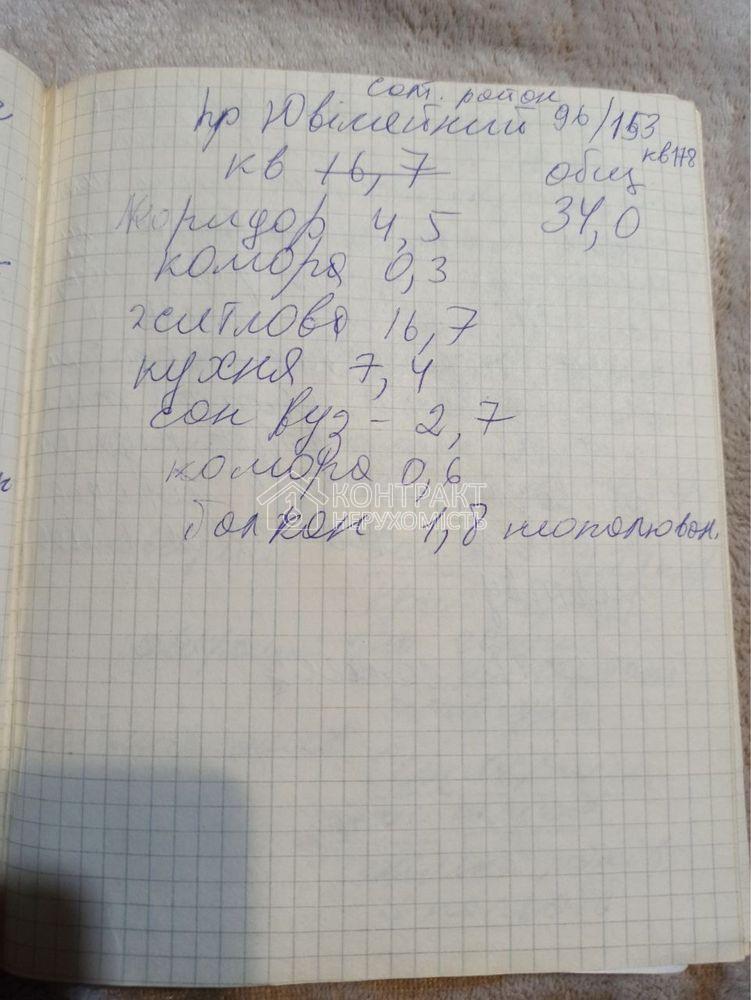 сот. район
пр Ювілейний 96/153
кв 16,7 общ кв 178
коридор 4,5 34,0
комора 0,3
житлова 16,7
кухня 7,4
сан вуз - 2,7
комора 0,6
КОНТРАКТ
НЕРУХОМІСТЬ
балкон 1,8